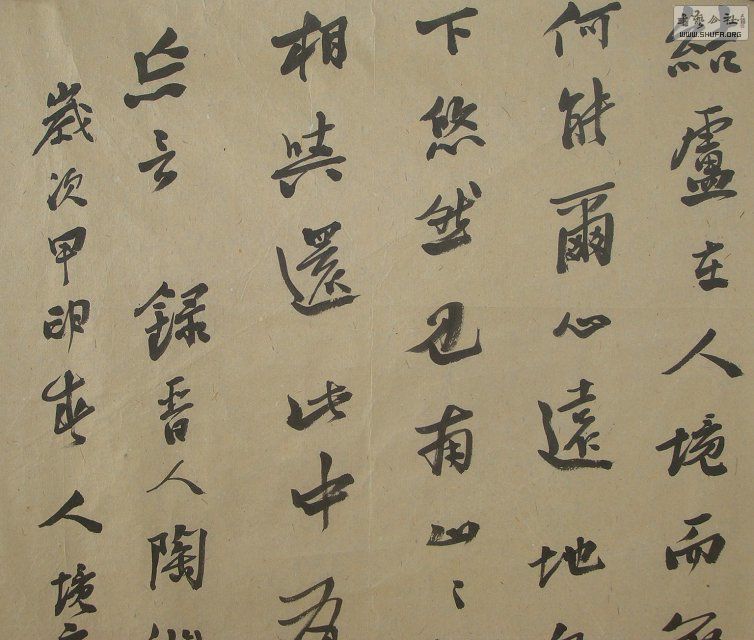 結盧在人境而
何能爾心遠地
下悠然見南山
相與還此中有
忘言 錄晉人陶
歲次甲春人境
書藝公社
WWW.SHUFA.ORG